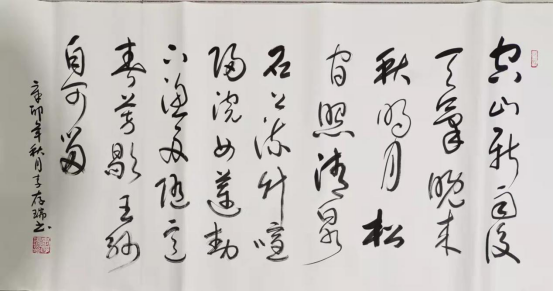 空山新雨後
天氣晚來
秋明月松
間照清泉
石上流竹喧
歸浣女蓮動
下漁舟隨意
春芳歇王孫
自可留
辛卯年秋月李存瑞书